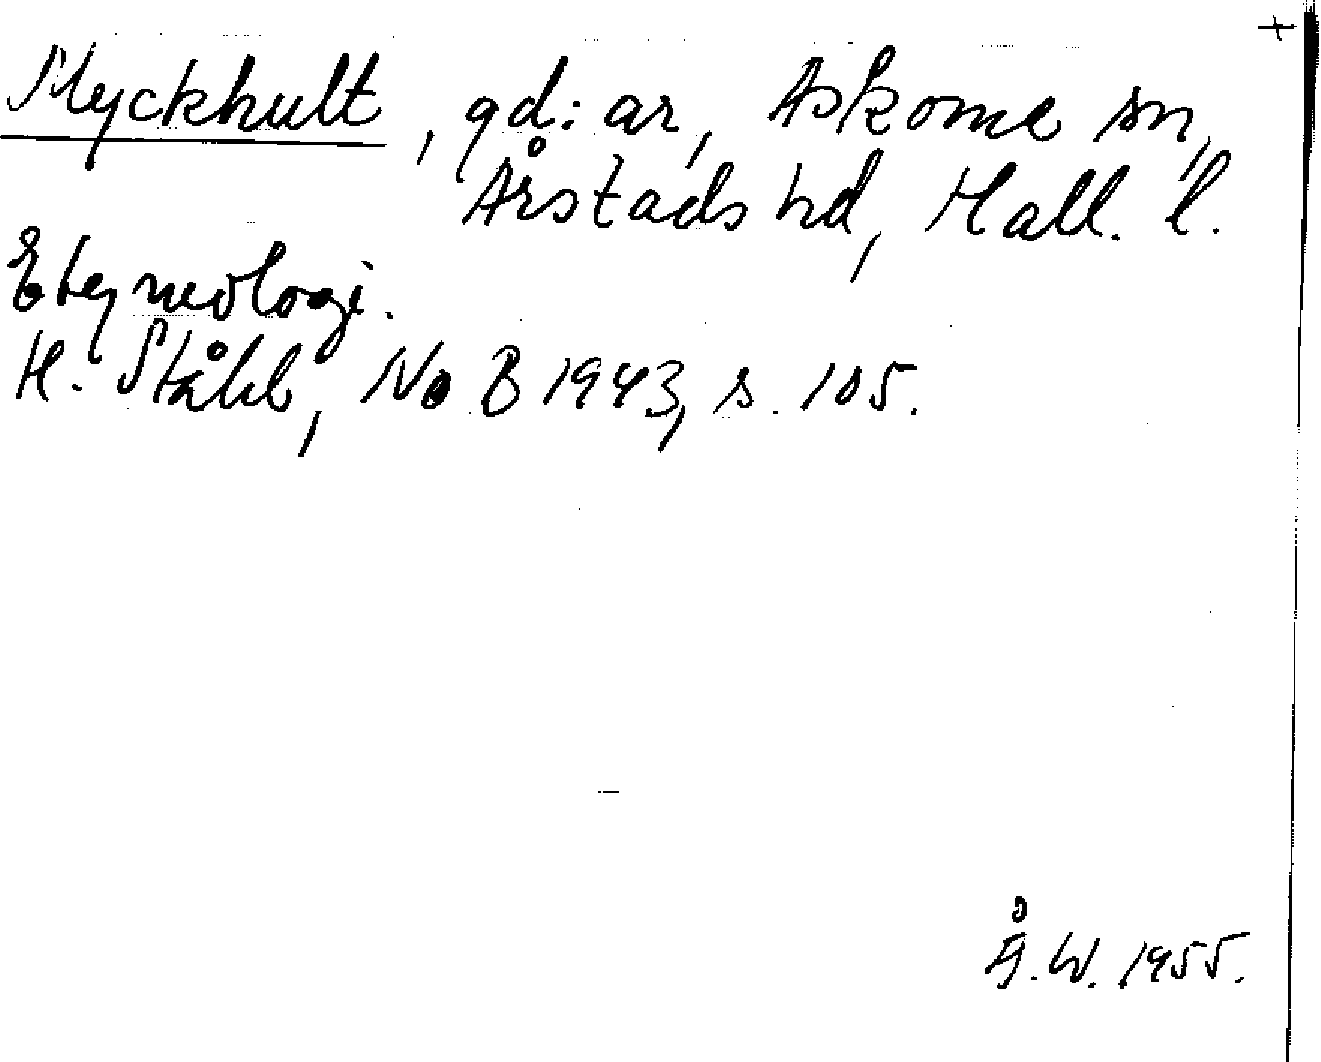 +
Myckhult, gd:ar, Askome sn,
Årstads hd, Hall. l.
Etymologi.
H. Ståhl, NoB 1943, s. 105.
Å.W. 1955.